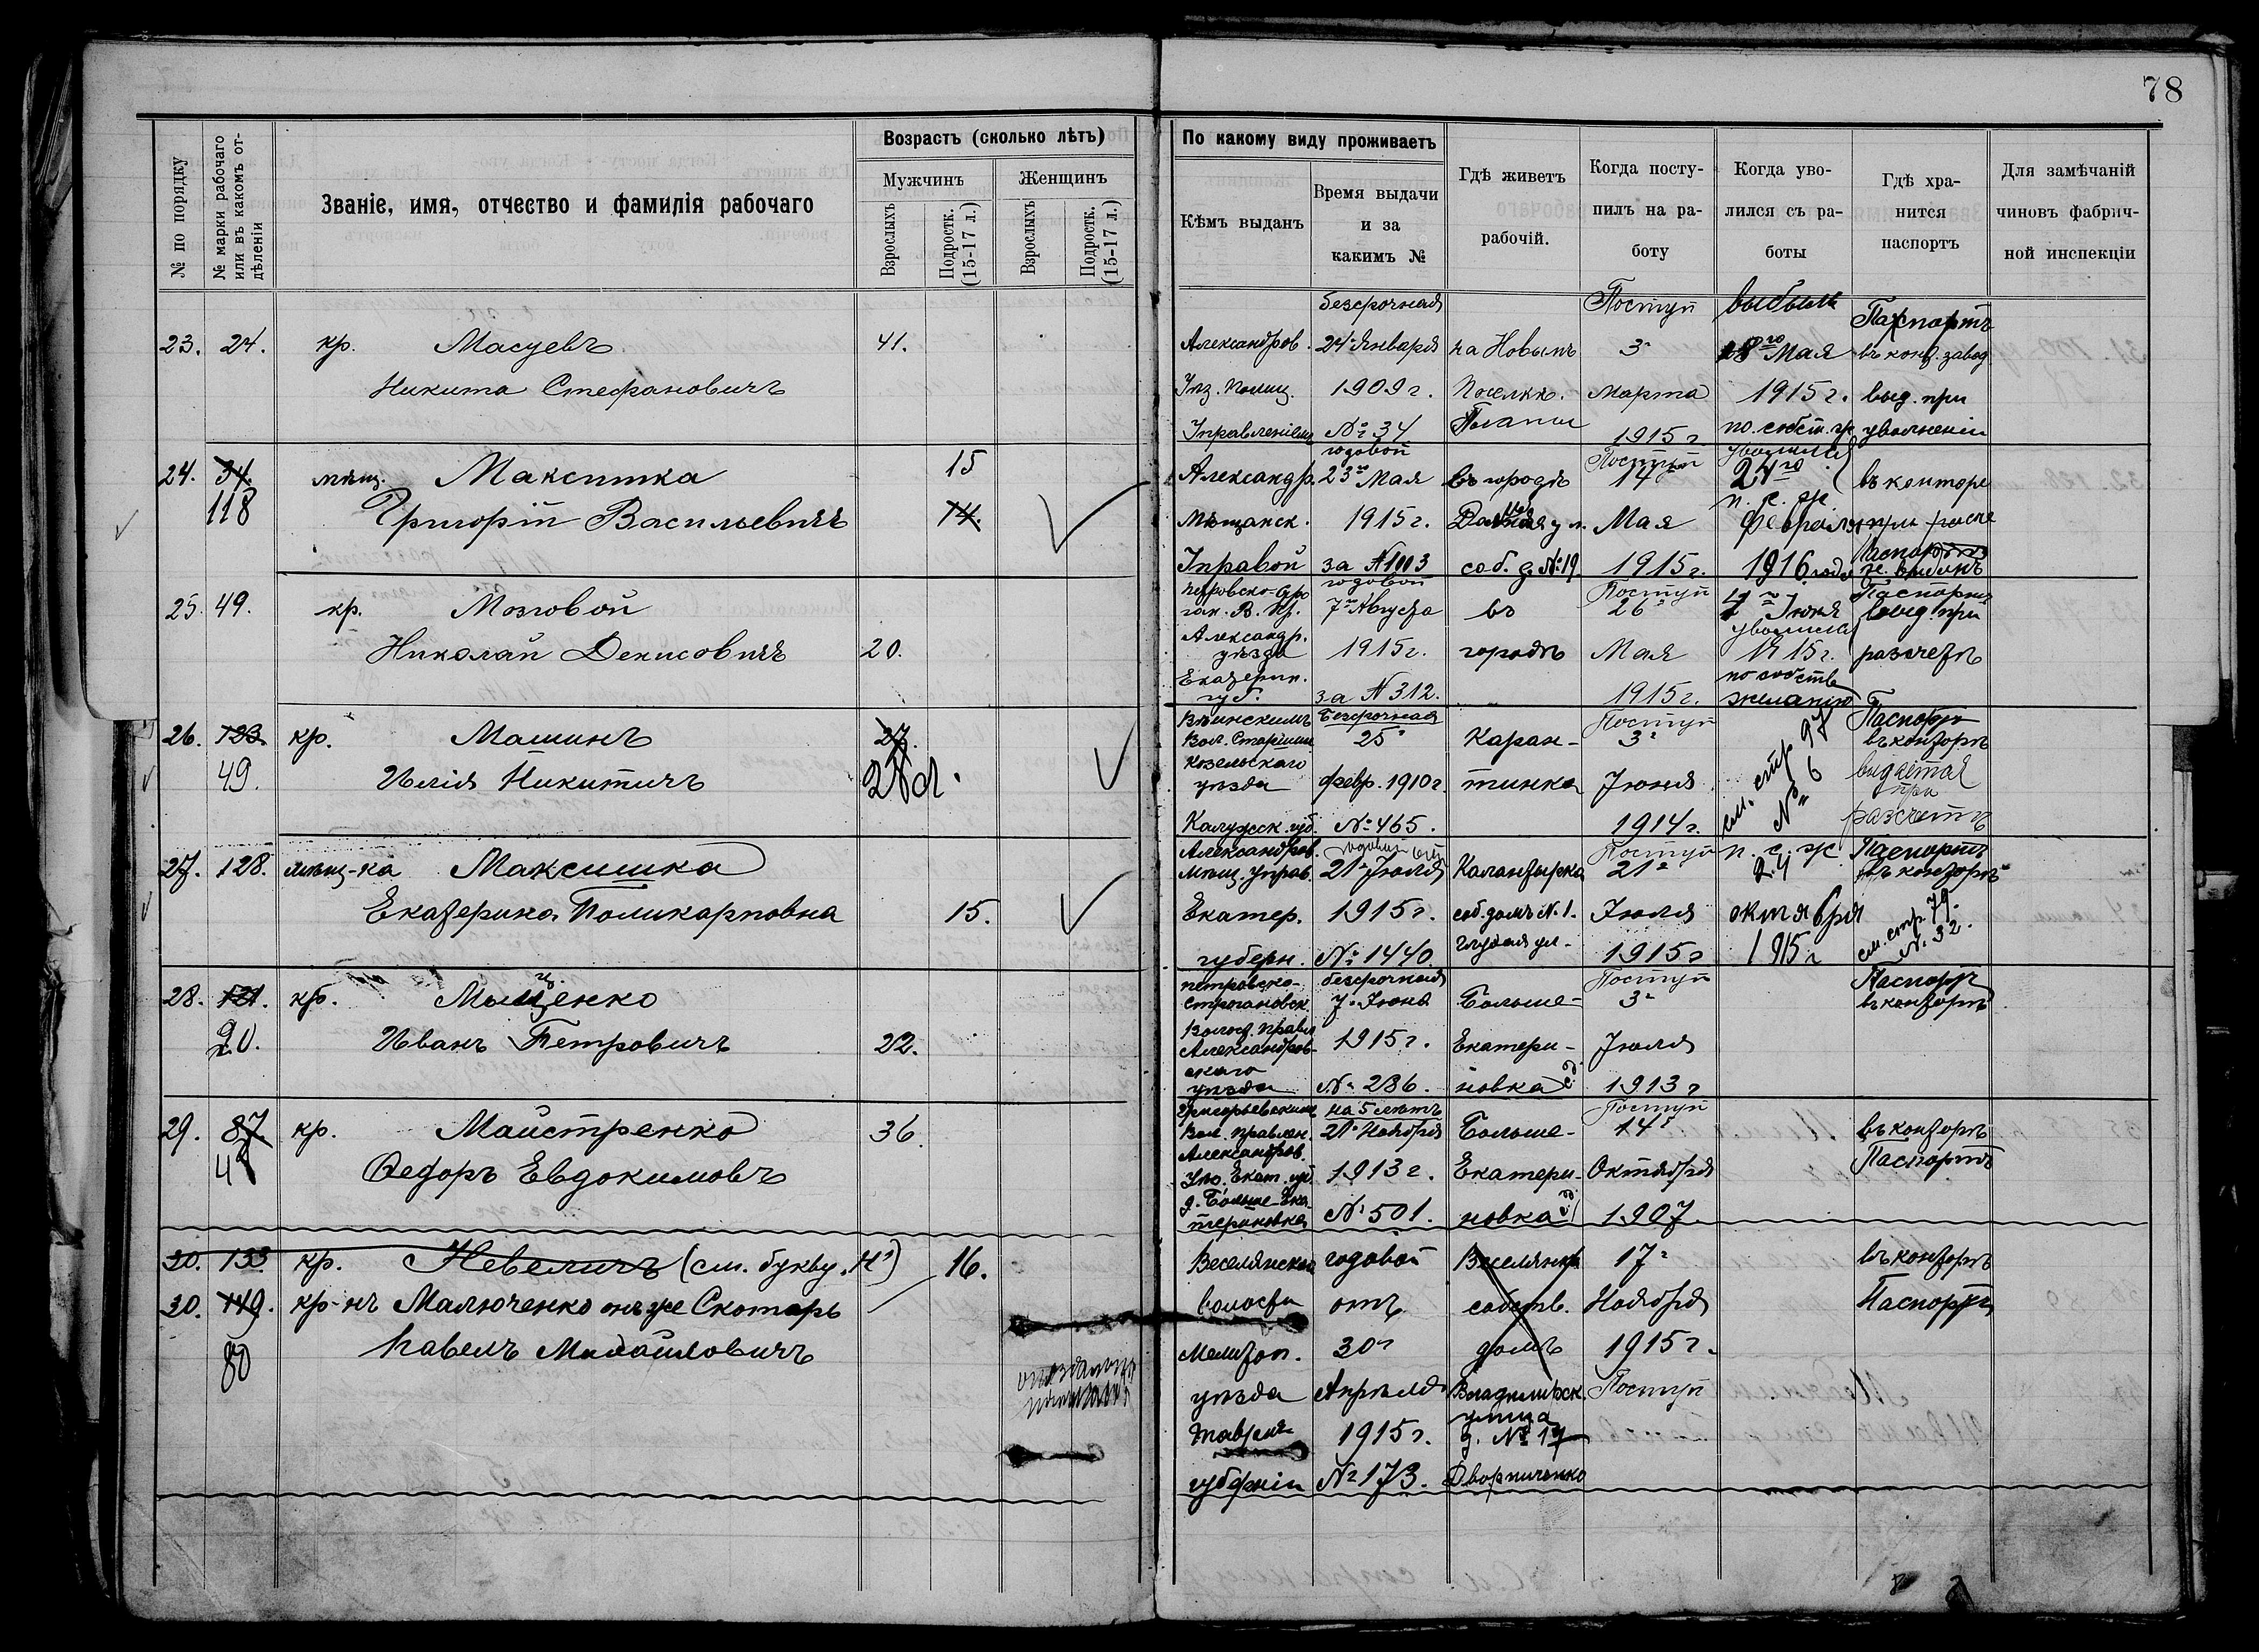 78
№ по порядку
№ марки рабочаго или въ какомъ отдѣленіи
Званіе, имя, отчество и фамилія рабочаго
Возрастъ (сколько лѣтъ)
Мужчинъ
Женщинъ
Взрослыхъ
Подростк. (15-17 л.)
Взрослыхъ
Подростк. (15-17 л.)
По какому виду проживаетъ
Кѣмъ выданъ
Время выдачи
и за
какимъ №
Гдѣ живетъ
рабочій.
Когда посту-
пилъ на ра-
боту
Когда уво-
лился съ ра-
боты
Гдѣ хра-
нится
паспортъ
Для замѣчаній
чиновъ фабрич-
ной инспекціи
23. 24. кр. Масуевъ 41.
Никита Стефановичъ
Александров.
Управленіемъ
безсрочная
24го Января
1909 г.
№ 34
на Новыхъ
Поступ
3го
Марта
1915 г.
выбылъ
18го Мая
1915 г.
по собст. ж.
Паспортъ
въ конт. завод
выд. при
увольненіи
24. 34. мѣщ. Макситка 15
118 Григорій Васильевичъ 14.
Александр.
Мѣщанск.
Управой
годовой
23го Мая
1915 г.
за № 1003
въ городѣ
соб. д. № 19
Поступ
14го
Мая
1915 г.
уволился
24го
п. с. ж.
Февраля
1916 года
въ конторе
25. 49. кр. Мозговой
Николай Денисовичъ 20.
Александр.
уѣзда
Екатерин.
губ.
годовой
7го Августа
1915 г.
за № 312.
въ
городѣ
Поступ
26го
Мая
1915 г.
Іюня
уволился
1915 г.
по собств
желанію
Паспортъ
выд. при
разсчетѣ
26. 123. кр. Машинъ 27.
49. Илія Никитичъ
Вол. Старшин
Козельскаго
уѣзда
Калужск. губ.
Безсрочная
25го
февр. 1910 г.
№ 465.
Каран-
тинка
Поступ
3го
Іюня
1914 г.
см. стр 97
№ 6
Паспорт
въ конторѣ
выдается
при
разсчетѣ
27. 128. мѣщ-ка Максишка
Екатерина Поликарповна 15.
Александров.
Мѣщ. Управ.
Екатер.
губерн.
21го Іюля
1915 г.
№ 1440.
Калантырка
соб. домъ № 1.
Глухая ул.
Поступ
21го
Іюля
1915 г
п. с. ж
24
октября
1915 г
Паспортъ
въ конторѣ
см. стр. 79.
№ 32.
28. 121. кр. Мыщенко
20. Иванъ Петровичъ 22.
Петровско-
Строгановск.
Волост. Правл
Александров-
скаго
уѣзда
безсрочная
7го Іюня
1915 г.
№ 286.
Больше-
Екатери-
новка
Поступ
3го
Іюля
1913 г
Паспорт
въ конторѣ
29. 87. кр. Майстренко 36.
Федоръ Евдокимовъ
Григорьевским
Вол. Правлен.
Александров.
Уѣз. Екат. губ.
д. Больше-Ека-
териновка
на 5 лѣтъ
21го Ноября
1913 г.
№ 501.
Больше-
Екатери-
новка
Поступ
14го
Октября
1907.
въ конторѣ
Паспортъ
30. 133 кр. Невеличъ (см. букву „Н") 16.
30. 149. кр-нъ Малюченко онъ же Скотарь
80 Павелъ Михайловичъ
Веселянской
волости
Мелитоп.
уѣзда
Таврич.
губерніи
годовой
отъ
30го
Апрѣля
1915 г.
№ 173.
Веселянка
собств.
домъ
Владимірск.
улица
д. № 17
Дворниченко
17го
Ноября
1915 г.
Поступ
въ конторѣ
Паспортъ